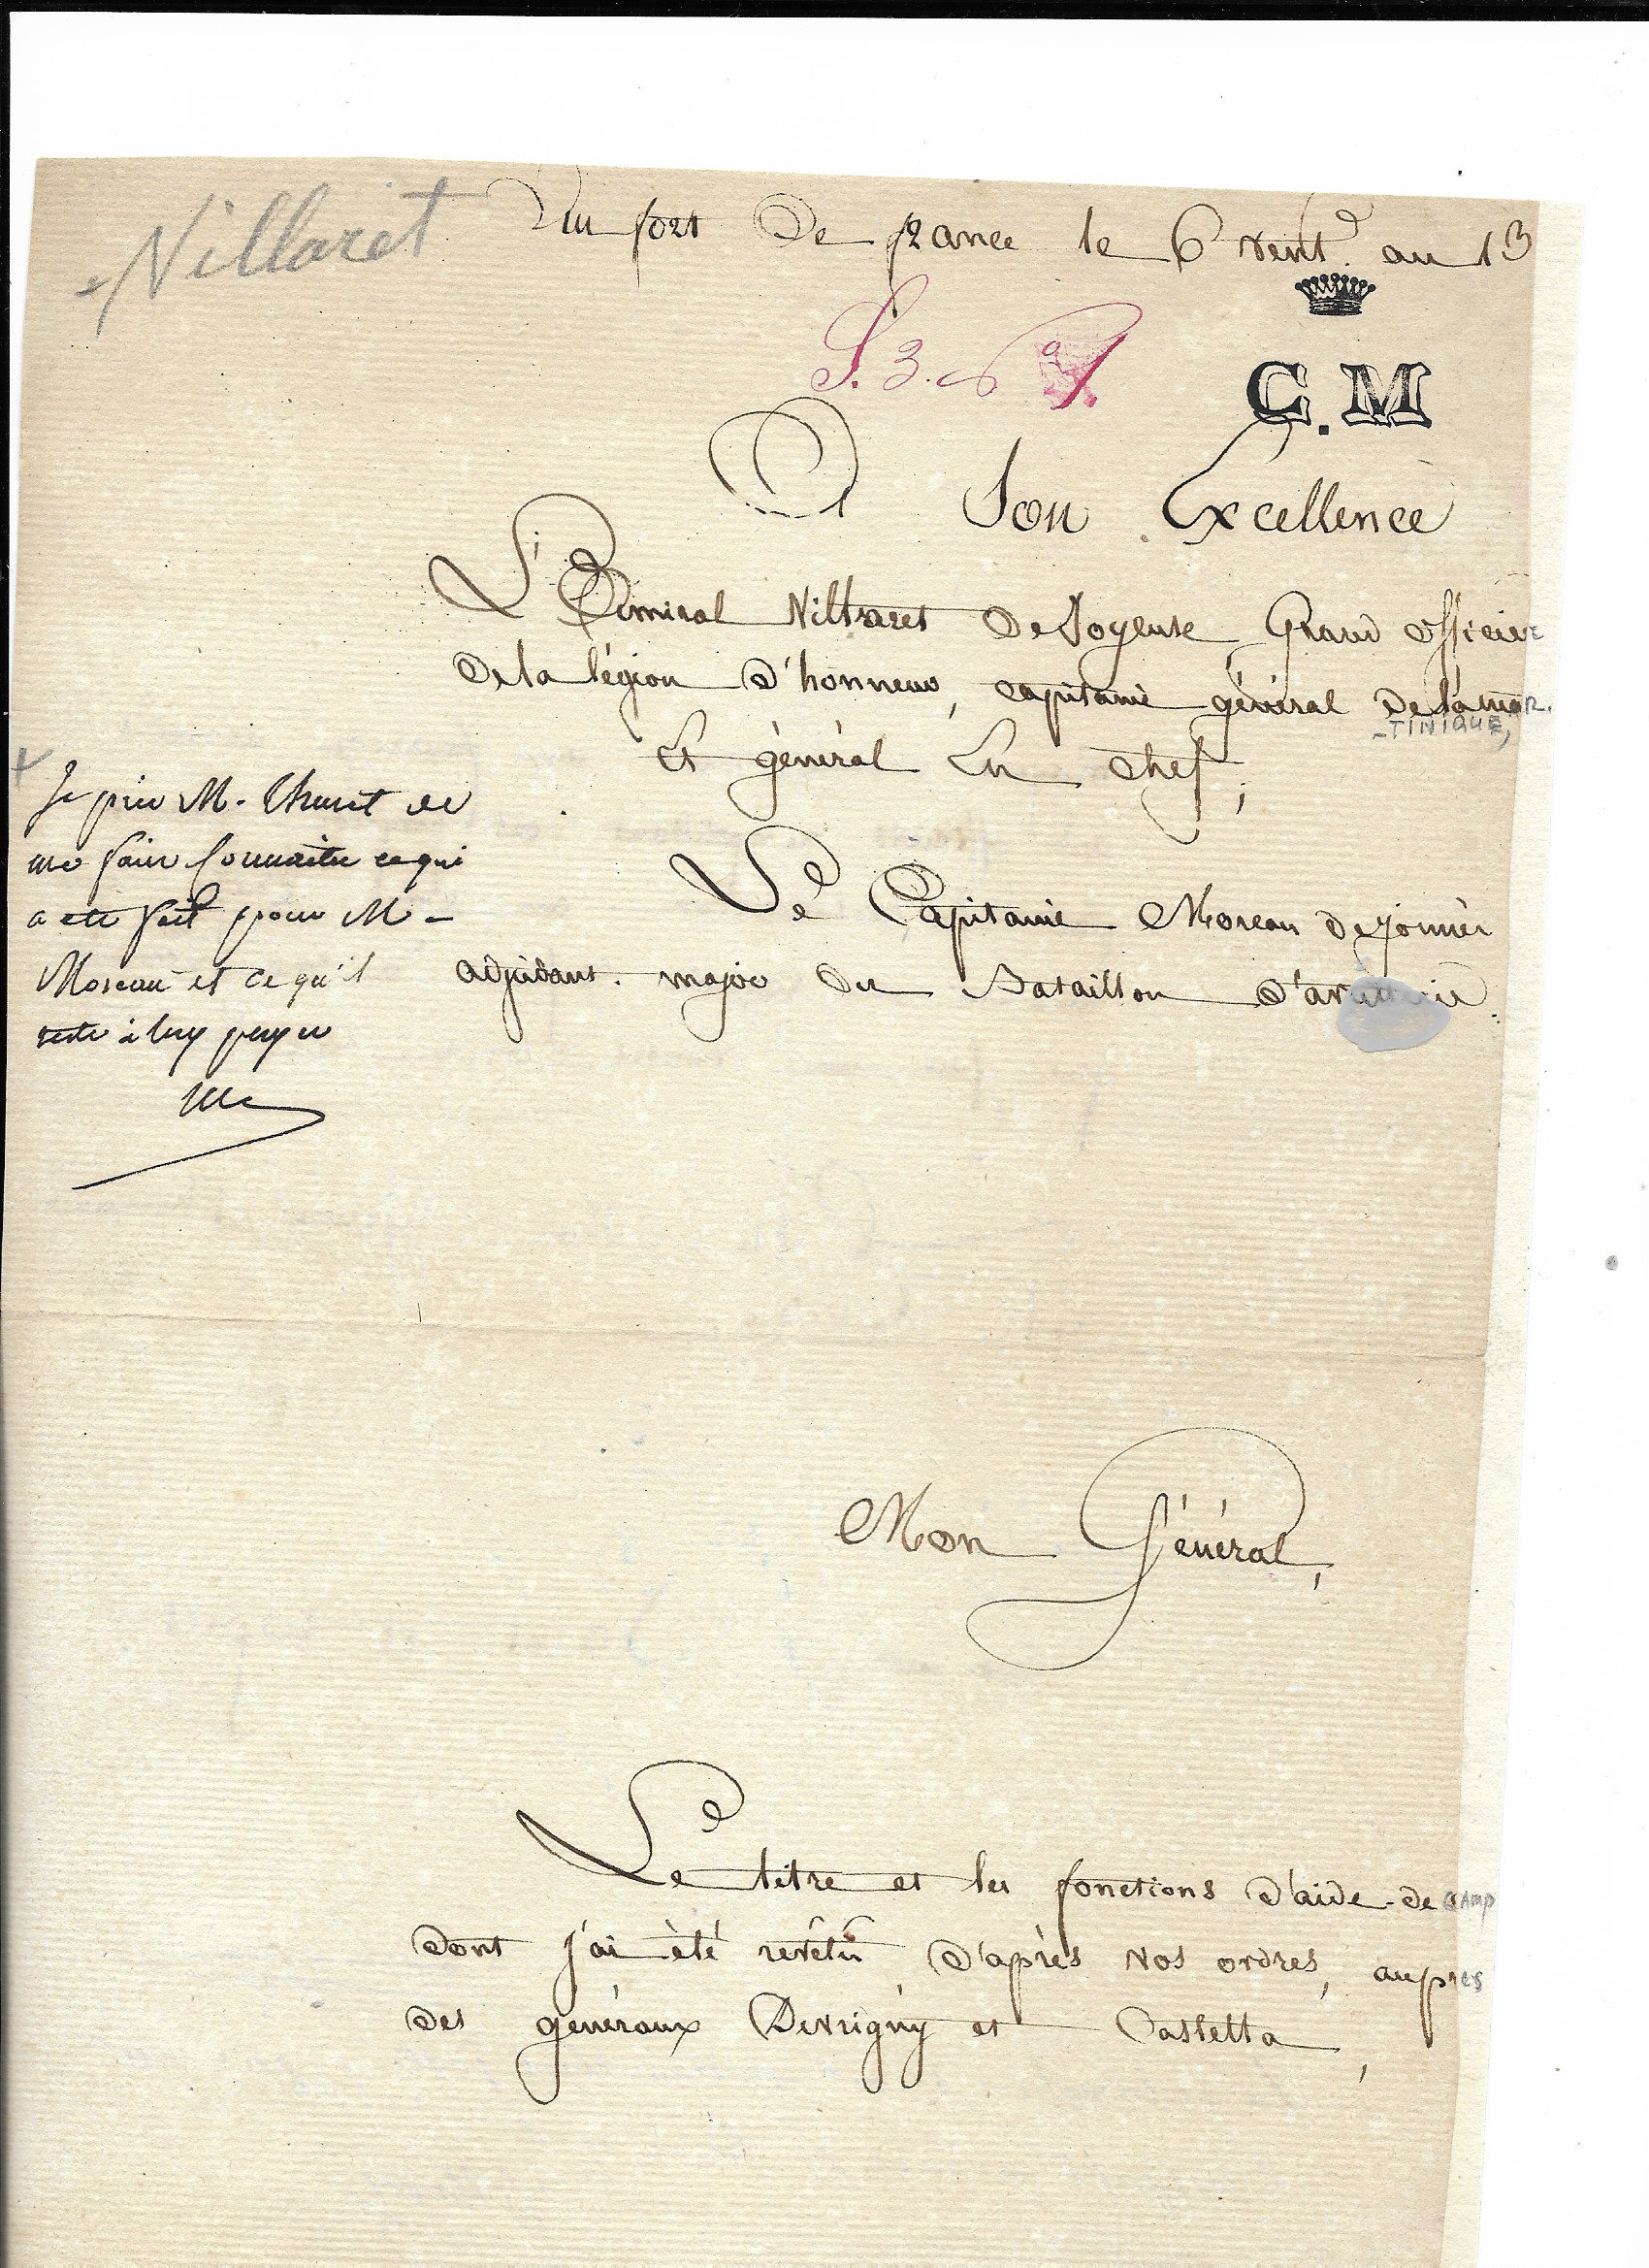 Villaret
Au fort de france le 6 vent.e an 13
C.M
A Son Excellence
L'Amiral Villaret De Joyeuse, Grand officier
De la légion d'honneur, capitaine général De la mar
-TINIQUE,
Et général En Chef;
Je prie M. de
me faire connaitre ce qui
a eté fait pour M-
Moreau et ce qu'il
reste à luy payer
Le Capitaine Moreau De jonnès
adjudant-major du Bataillon d'artillerie.
Mon Général,
Le titre et les fonctions d'aide-de camp
dont j'ai été revêtu d'après vos ordres, auprès
des généraux Devrigny et Castella,